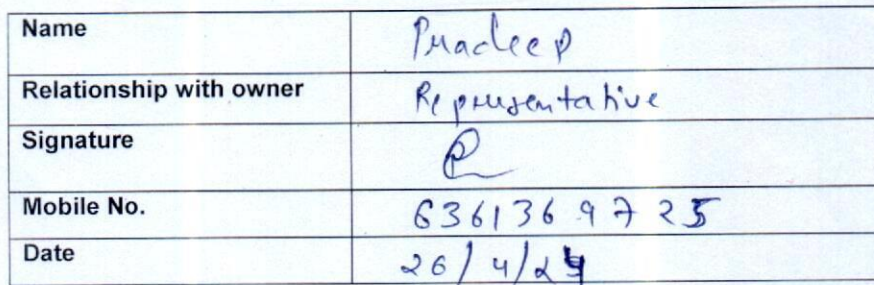 Name Pradeep
Relationship with owner Representative
Signature
Mobile No. 6361369725
Date 26/4/24